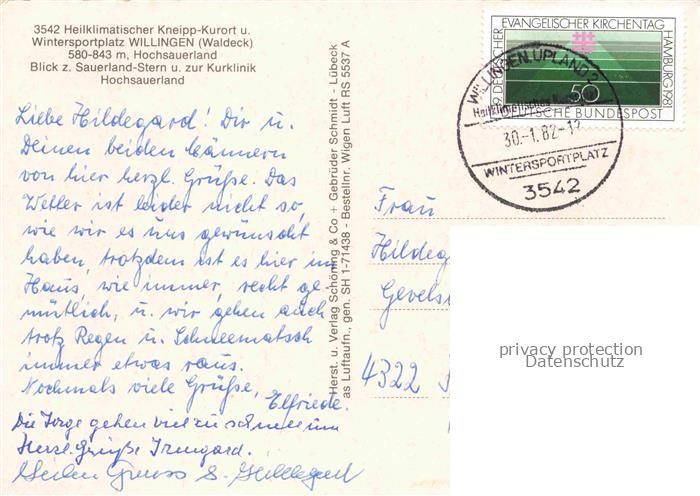 3542 Heilklimatischer Kneipp-Kurort u.
Wintersportplatz WILLINGEN (Waldeck)
580-843 m, Hochsauerland
Blick z. Sauerland-Stern u. zur Kurklinik
Hochsauerland
Liebe Hildegard! Dir u.
Deinen beiden Männern
von hier herzl. Grüße. Das
Wetter ist leider nicht so,
wie wir es uns gewünscht
haben, trotzdem ist es hier im
Haus, wie immer, recht ge-
mütlich, u. wir gehen auch
trotz Regen u. Schneematsch
immer etwas raus.
Nochmals viele Grüße,
Elfriede.
Die Tage gehen viel zu schnell um
Herzl. Grüße Irmgard.
Gruss
Herst. u. Verlag Schöning & Co + Gebrüder Schmidt - Lübeck
as Luftaufn., gen. SH 1-71438 - Bestellnr. Wigen Luft RS 5537 A
19. DEUTSCHER EVANGELISCHER KIRCHENTAG HAMBURG 1981
50
DEUTSCHE BUNDESPOST
WILLINGEN, UPLAND 2
Heilklimatisches
30.-1.82-12
WINTERSPORTPLATZ
3542
Frau
Hildeg
Gevels
4322
privacy protection
Datenschutz